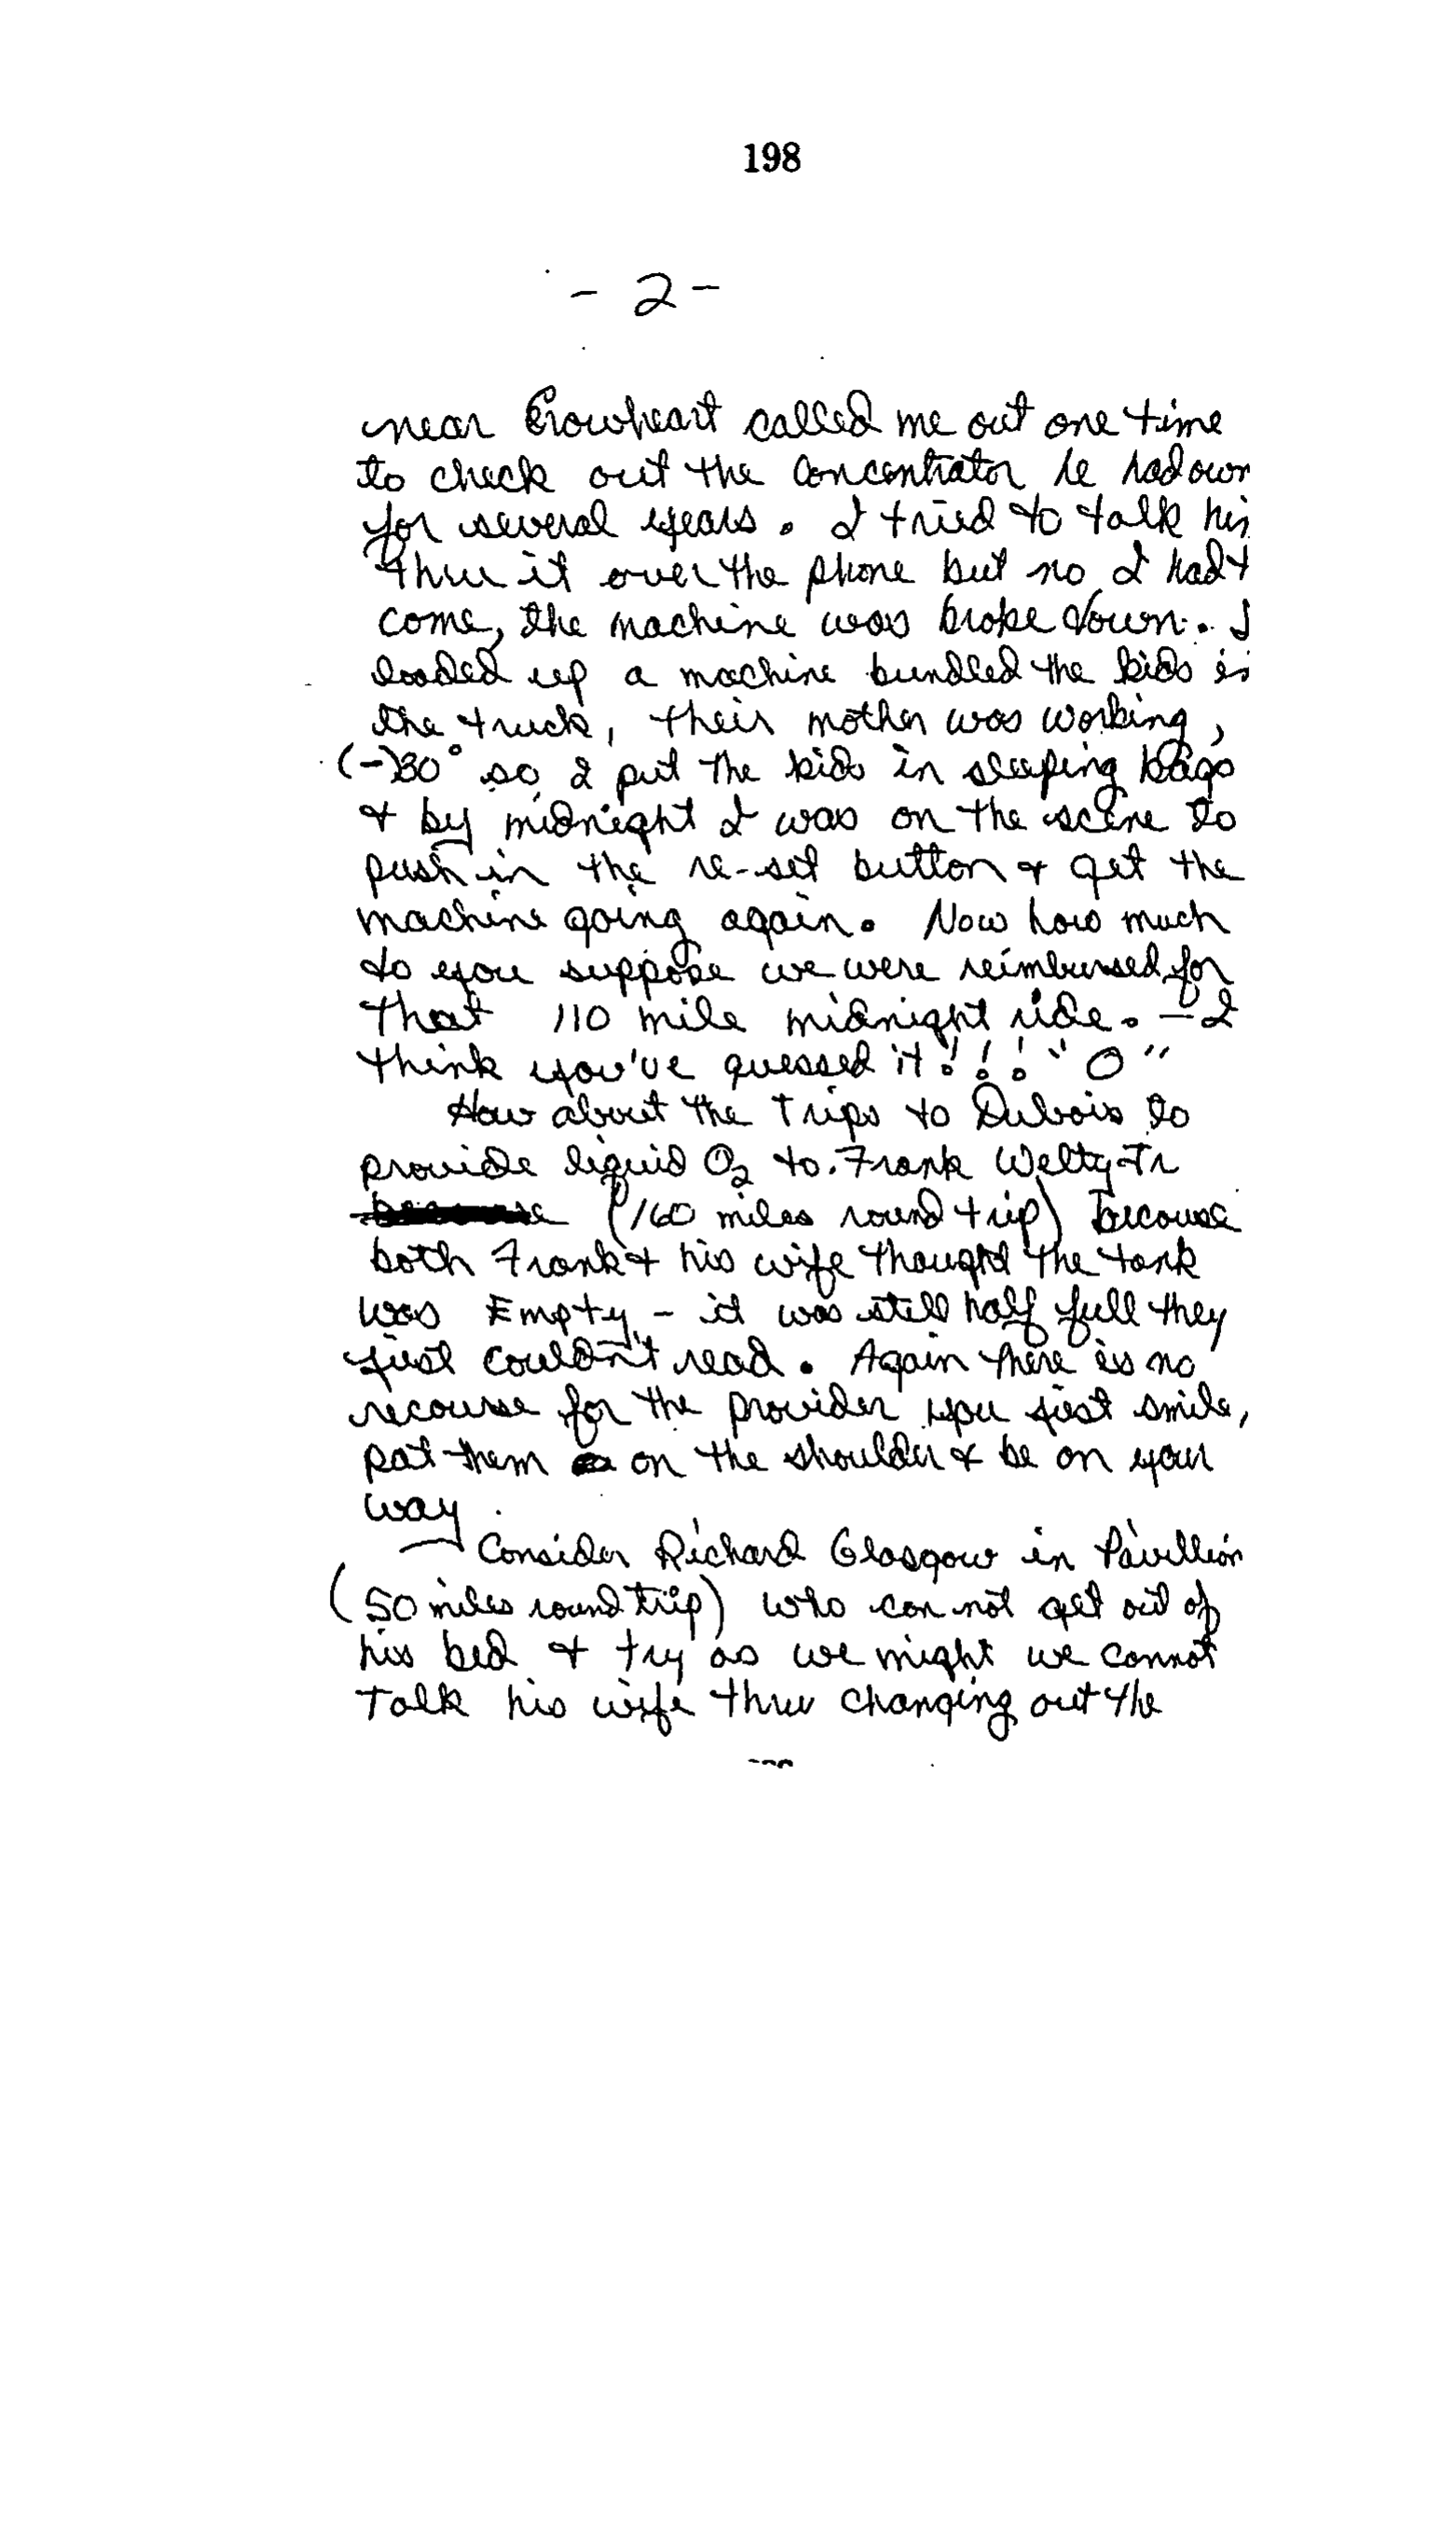 198
- 2 -
near Crowheart called me out one time
to check out the Concentrator he had own
for several years. I tried to talk hi
thru it over the phone but no I had t
come, the machine was broke down. I
loaded up a machine bundled the kids i
the truck, their mother was working,
(-)30° so I put the kids in sleeping bags
& by midnight I was on the scene to
push in the re-set button & get the
machine going again. Now how much
do you suppose we were reimbursed for
that 110 mile midnight ride. - I
think you've guessed it!!! "0"
How about the Trips to Dubois to
provide liquid O2 to Frank Welty Jr
(160 miles round trip) because
both Frank & his wife thought the tank
was Empty, - it was still half full they
just couldn't read. Again there is no
recourse for the provider you just smile,
pat them on the shoulder & be on your
way.
Consider Richard Glasgow in Pavillion
(50 miles round trip) who can not get out of
his bed & try as we might we cannot
Talk his wife thru changing out the